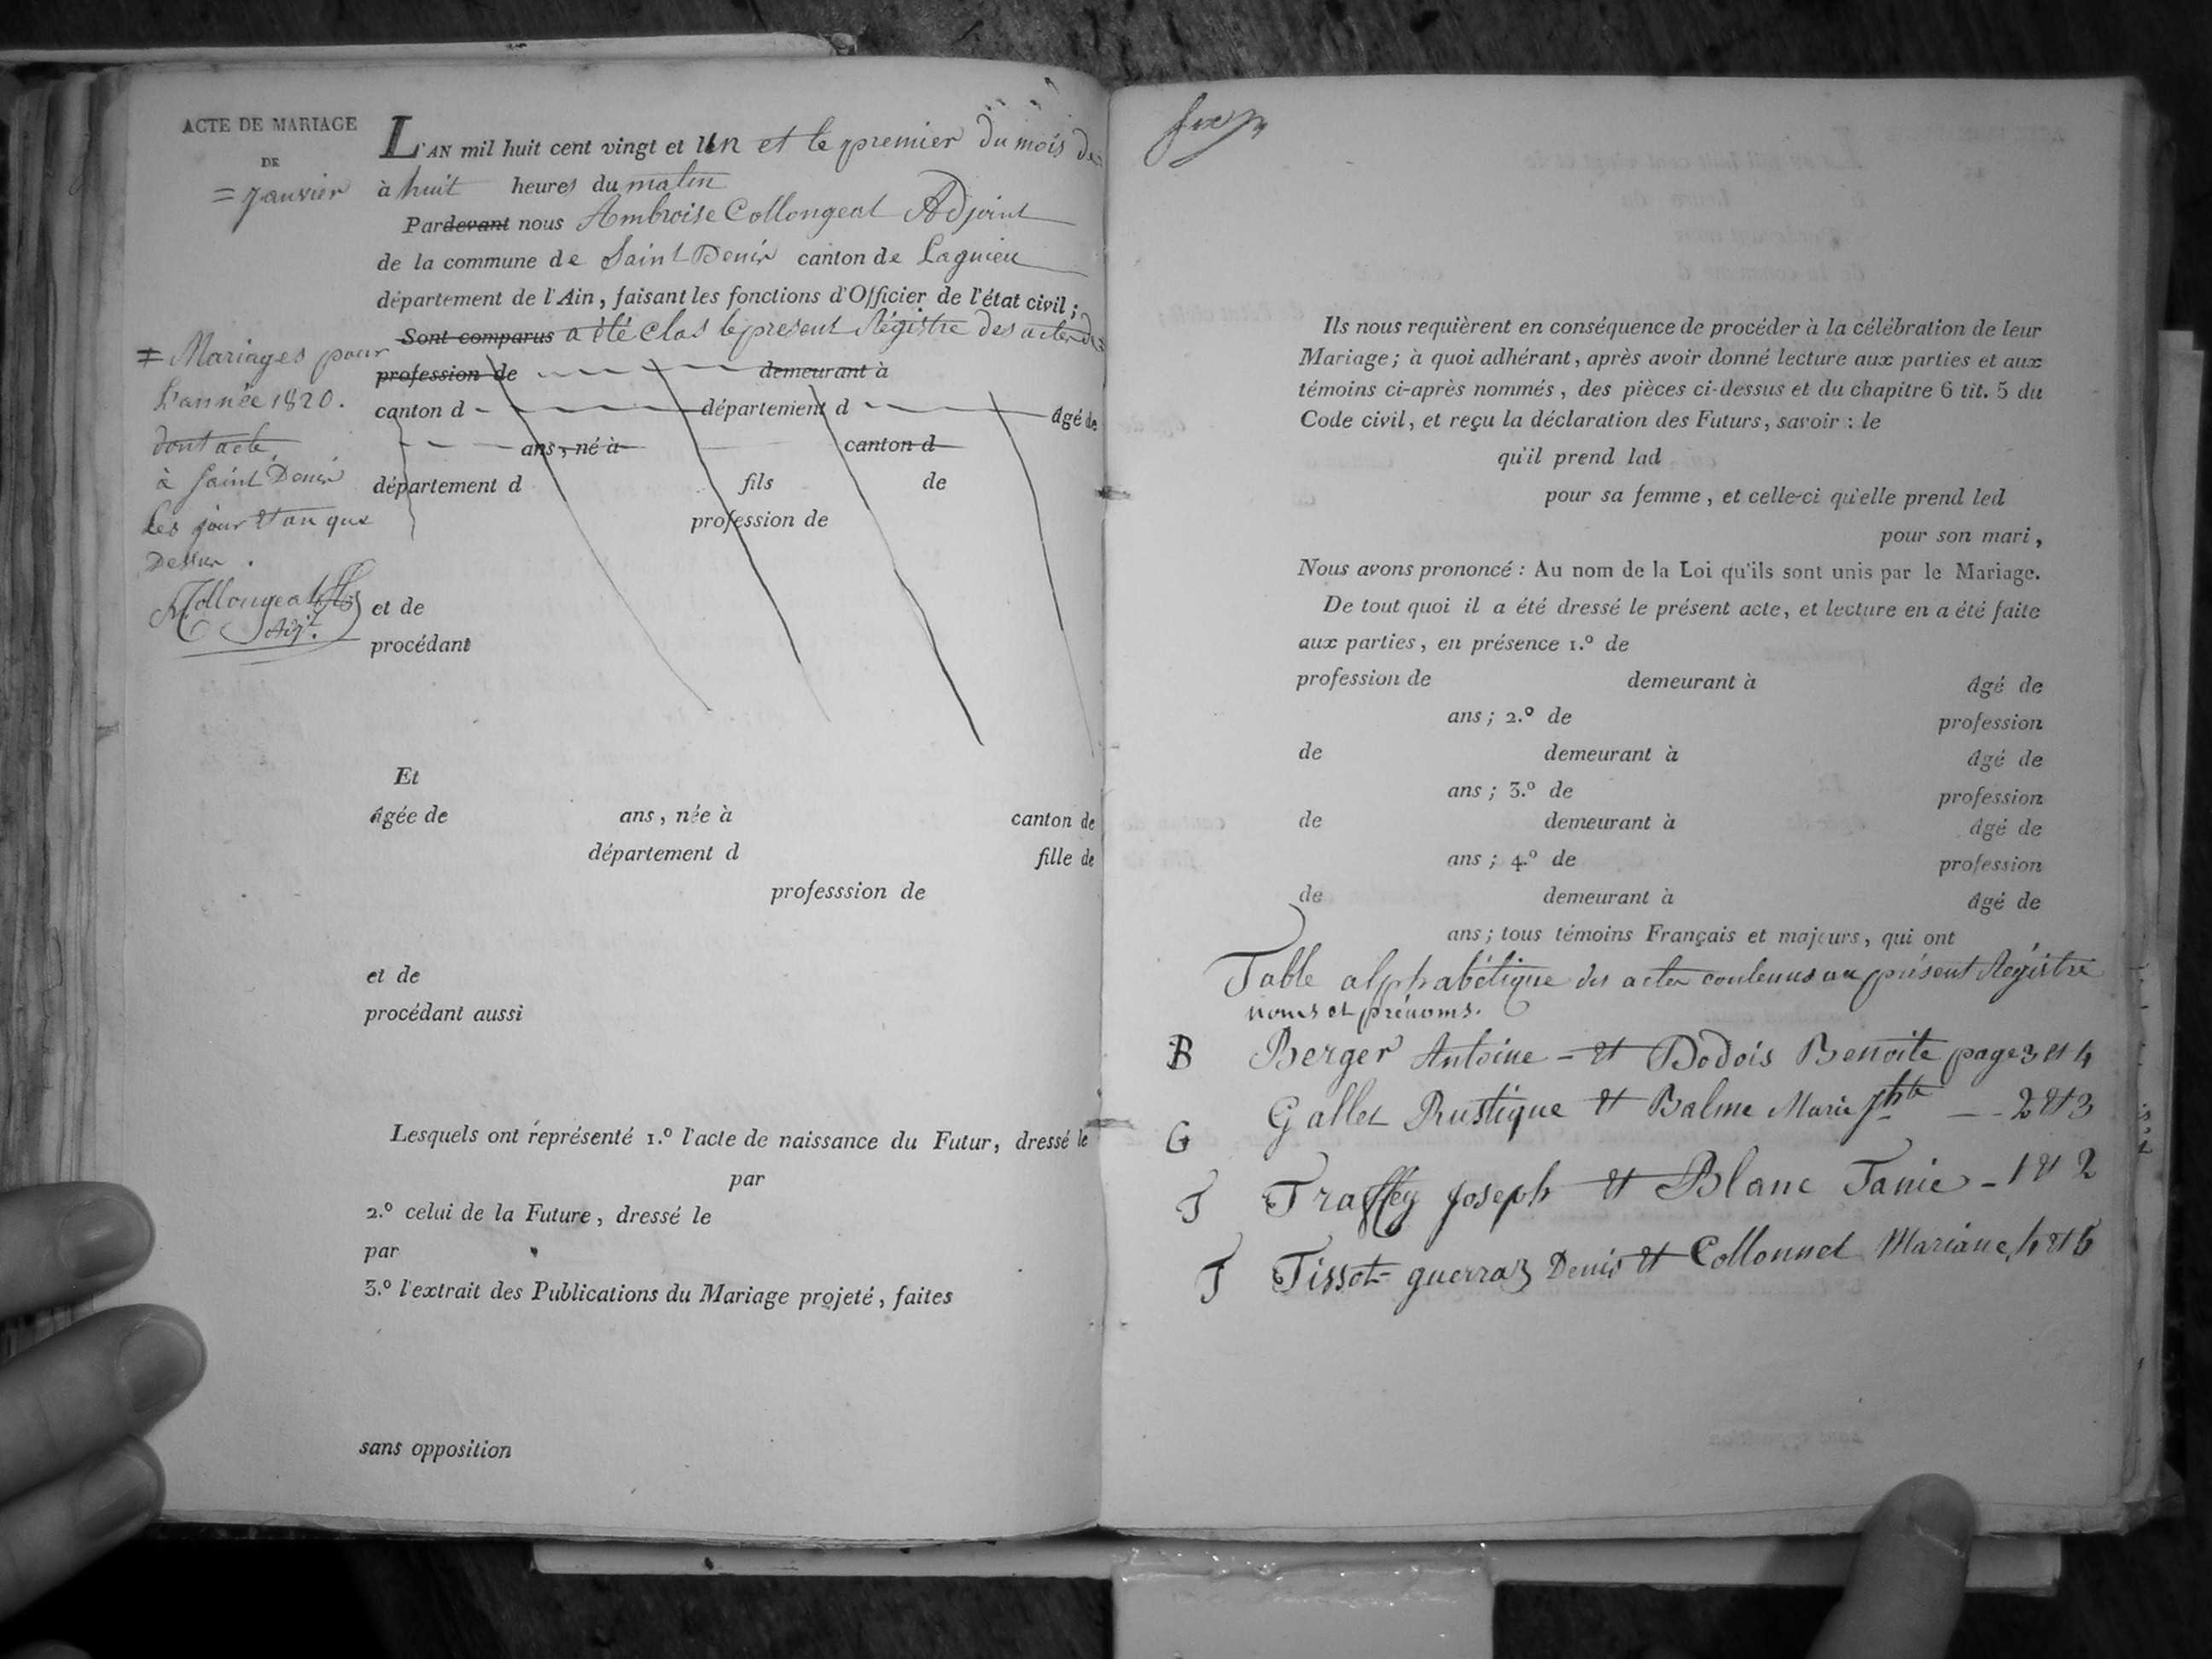 ACTE DE MARIAGE
DE
= Janvier
L'AN mil huit cent vingt et un et le premier du mois de
à huit heures du matin
Pardevant nous Ambroise Collongeat Adjoint
de la commune de Saint Denis canton de Lagnieu
département de l'Ain, faisant les fonctions d'Officier de l'état civil;
Sont comparus a été clos le present Régistre des actes de
≠ Mariages pour
L'année 1820.
dont acte
à Saint Denis
les jour et an que
Dessus.
Collongeat
Adjt.
profession de demeurant à
canton d département d âgé de
ans, né à canton d
département d fils de
profession de
et de
procédant
Et
âgée de ans, née à canton de
département d fille de
professsion de
et de
procédant aussi
Lesquels ont représenté 1.º l'acte de naissance du Futur, dressé le
par
2.º celui de la Future, dressé le
par
3.º l'extrait des Publications du Mariage projeté, faites
sans opposition
Ils nous requièrent en conséquence de procéder à la célébration de leur
Mariage; à quoi adhérant, après avoir donné lecture aux parties et aux
témoins ci-après nommés, des pièces ci-dessus et du chapitre 6 tit. 5 du
Code civil, et reçu la déclaration des Futurs, savoir: le
qu'il prend lad
pour sa femme, et celle-ci qu'elle prend led
pour son mari,
Nous avons prononcé: Au nom de la Loi qu'ils sont unis par le Mariage.
De tout quoi il a été dressé le présent acte, et lecture en a été faite
aux parties, en présence 1.º de
profession de demeurant à âgé de
ans; 2.º de profession
de demeurant à âgé de
ans; 3.º de profession
de demeurant à âgé de
ans; 4.º de profession
de demeurant à âgé de
ans; tous témoins Français et majeurs, qui ont
Table alphabétique des actes contenus au présent Régistre
noms et prénoms.
B Berger Antoine - et Dodois Benoite page 3 et 4
G Gallet Rustique et Balme Marie Jhte - 2 et 3
T Traffey Joseph et Blanc Tanie - 1 et 2
T Tissot-guerraz Denis et Collonnel Mariane 4 et 5